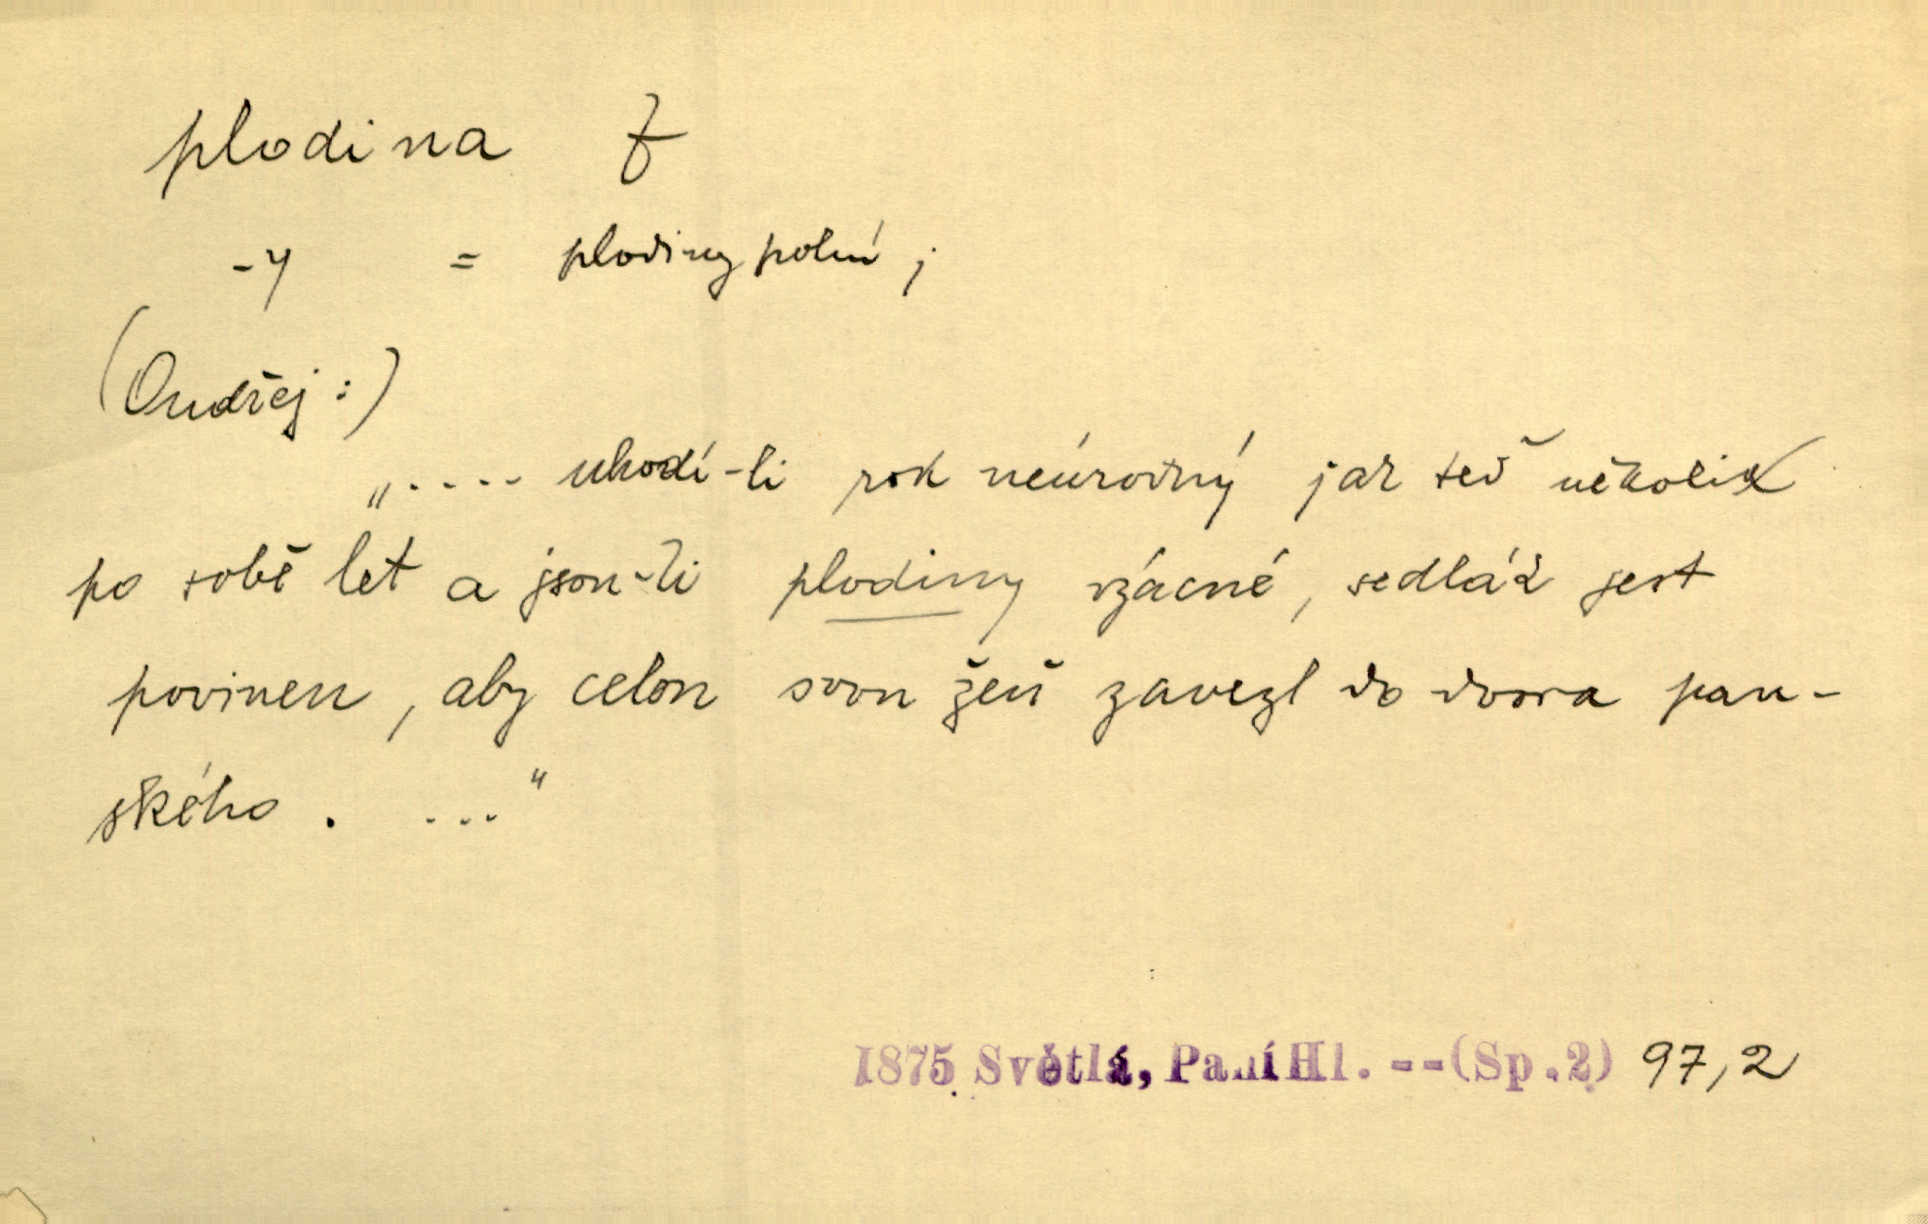 plodina f
-y = plodiny polní ;
(Ondřej :)
„.... uhodí-li rok neúrodný jak teď několik
po sobě let a jsou-li plodiny vzácné, sedlák jest
povinen, aby celou svou žeň zavezl do dvora pan-
ského. ..."
1875 Světlá, Paní Hl. --(Sp.2) 97,2